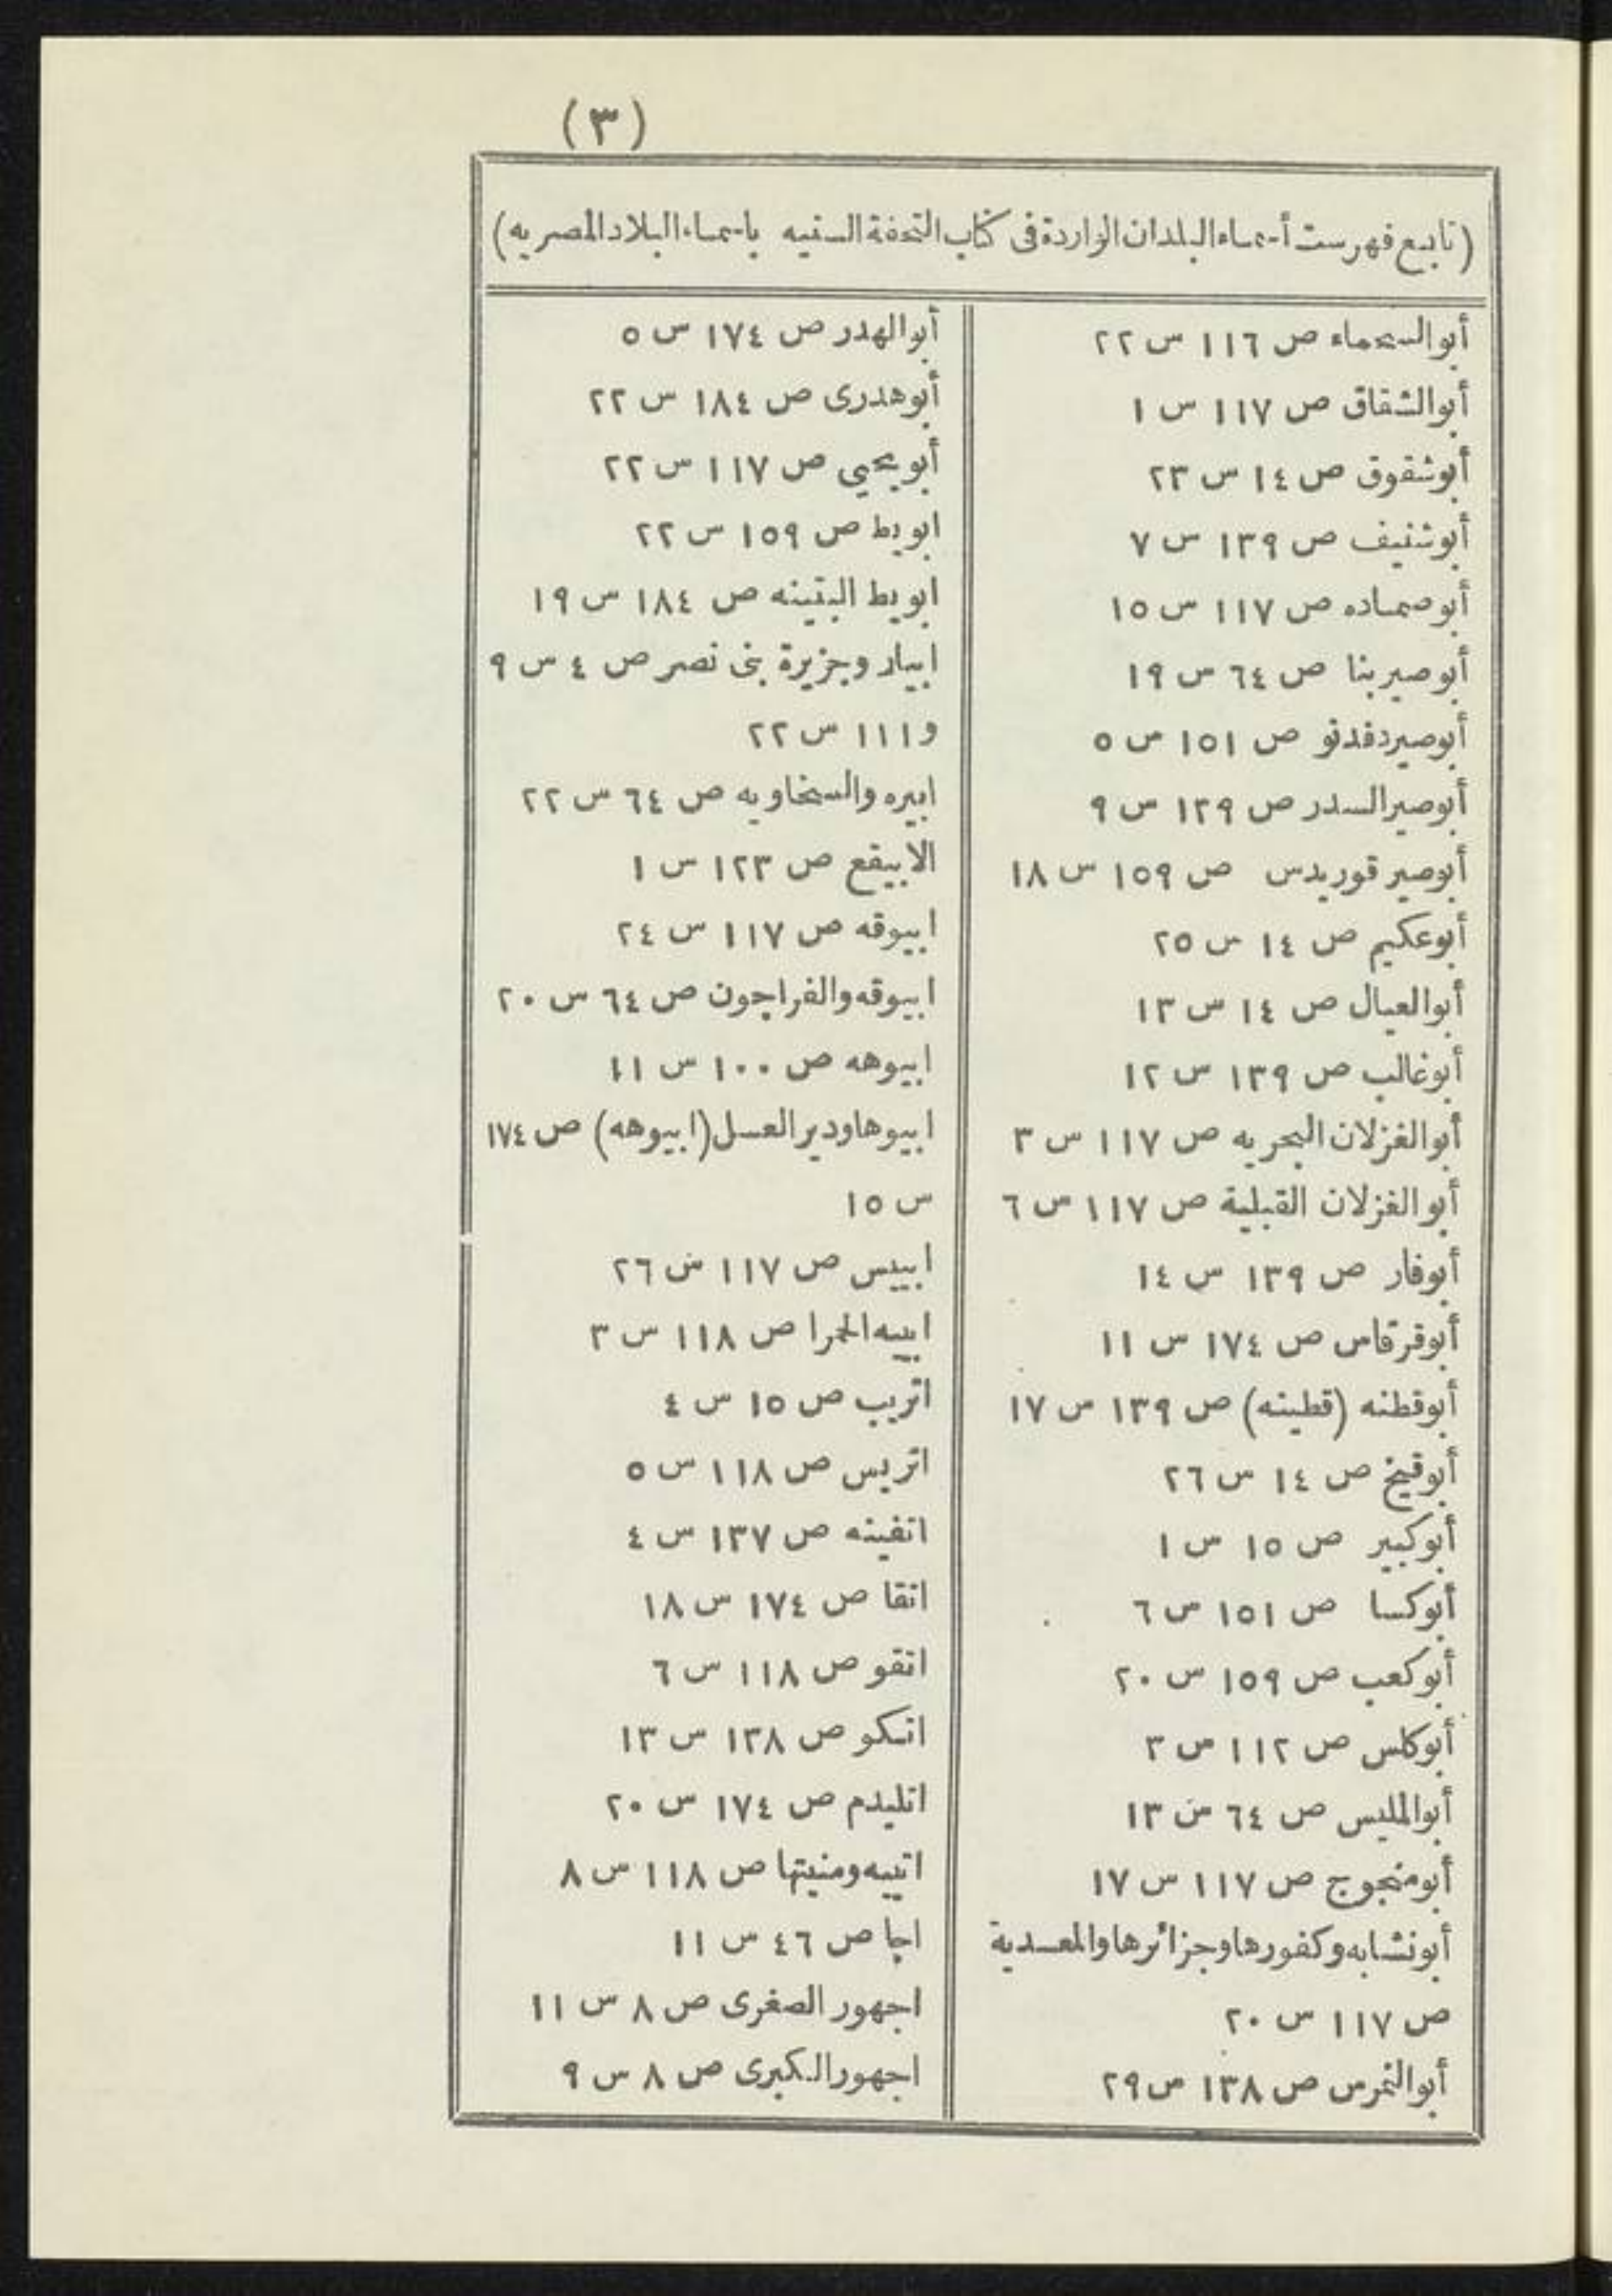 (٣)
(تابع فهرست أسماء البلدان الواردة فى كتاب التحفة السنيه باسماء البلاد المصريه)
أبو السحماء ص ١١٦ س ٢٢
أبو الشقاق ص ١١٧ س ١
أبو شقوق ص ١٤ س ٢٣
أبو شنيف ص ١٣٩ س ٧
أبو صماده ص ١١٧ س ١٥
أبو صير بنا ص ٦٤ س ١٩
أبو صير دفدنو ص ١٥١ س ٥
أبو صير السدر ص ١٣٩ س ٩
أبو صير قوريدس ص ١٥٩ س ١٨
أبو عكيم ص ١٤ س ٢٥
أبو العيال ص ١٤ س ١٣
أبو غالب ص ١٣٩ س ١٢
أبو الغزلان البحريه ص ١١٧ س ٣
أبو الغزلان القبلية ص ١١٧ س ٦
أبو فار ص ١٣٩ س ١٤
أبو قرقاص ص ١٧٤ س ١١
أبو قطنه (قطينه) ص ١٣٩ س ١٧
أبو قيخ ص ١٤ س ٢٦
أبو كبير ص ١٥ س ١
أبو كسا ص ١٥١ س ٦
أبو كعب ص ١٥٩ س ٢٠
أبو كلس ص ١١٢ س ٣
أبو المليس ص ٦٤ س ١٣
أبو منجوج ص ١١٧ س ١٧
أبو نشابه وكفورها وجزائرها والمعدية
ص ١١٧ س ٢٠
أبو النمرس ص ١٣٨ س ٢٩
أبو الهدر ص ١٧٤ س ٥
أبو هدرى ص ١٨٤ س ٢٢
أبو يحيي ص ١١٧ س ٢٢
ابويط ص ١٥٩ س ٢٢
ابويط البتينه ص ١٨٤ س ١٩
ابيار وجزيرة بنى نصر ص ٤ س ٩
و ١١١ س ٢٢
ابيره والسخاويه ص ٦٤ س ٢٢
الابيقع ص ١٢٣ س ١
ابيوقه ص ١١٧ س ٢٤
ابيوقه والفراجون ص ٦٤ س ٢٠
ابيوهه ص ١٠٠ س ١١
ابيوها ودير العسل (ابيوهه) ص ١٧٤
س ١٥
ابييس ص ١١٧ س ٢٦
ابييه الحمرا ص ١١٨ س ٣
اتريب ص ١٥ س ٤
اتريس ص ١١٨ س ٥
اتفينه ص ١٣٧ س ٤
اتقا ص ١٧٤ س ١٨
اتقو ص ١١٨ س ٦
اتكو ص ١٣٨ س ١٣
اتليدم ص ١٧٤ س ٢٠
اتييه ومنيتها ص ١١٨ س ٨
اجا ص ٤٦ س ١١
اجهور الصغرى ص ٨ س ١١
اجهور الكبرى ص ٨ س ٩